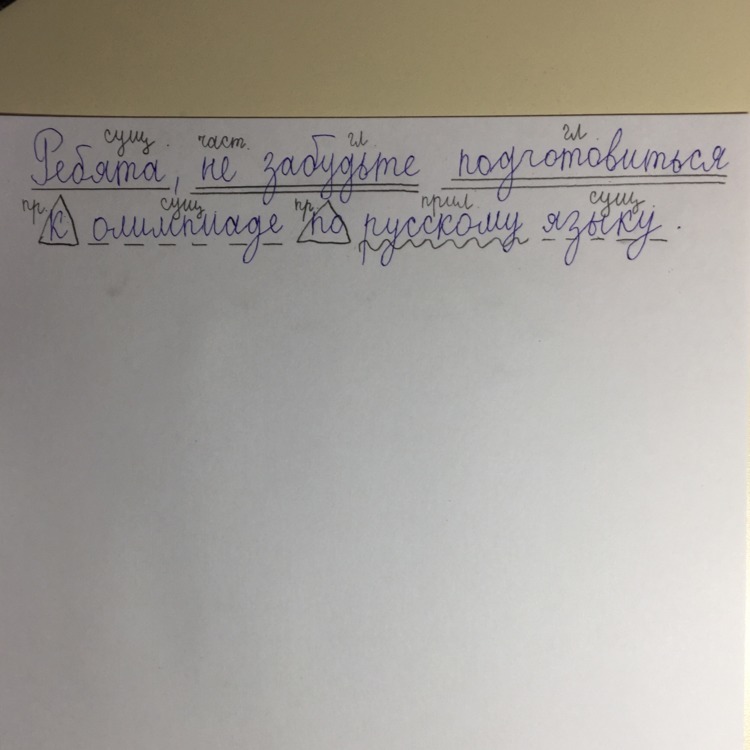 сущ. част. гл. гл.
Ребята, не забудьте подготовиться
пр. сущ. пр. прил. сущ.
к олимпиаде по русскому языку.